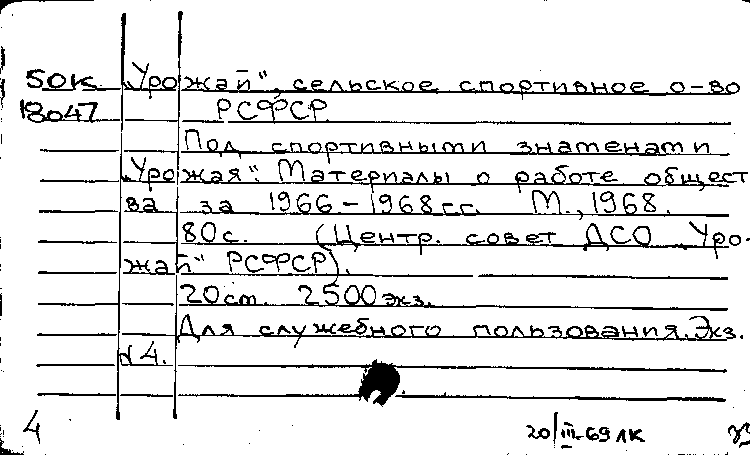 50к „Урожай", сельское спортивное о-во
18047 РСФСР
Под спортивными знаменами
„Урожая". Материалы о работе общест
ва за 1966-1968гг. М., 1968.
80с. (Центр. совет ДСО „Уро-
жай" РСФСР).
20см. 2500экз.
Для служебного пользования. Экз.
№4.
4 20/III-69 ЛК